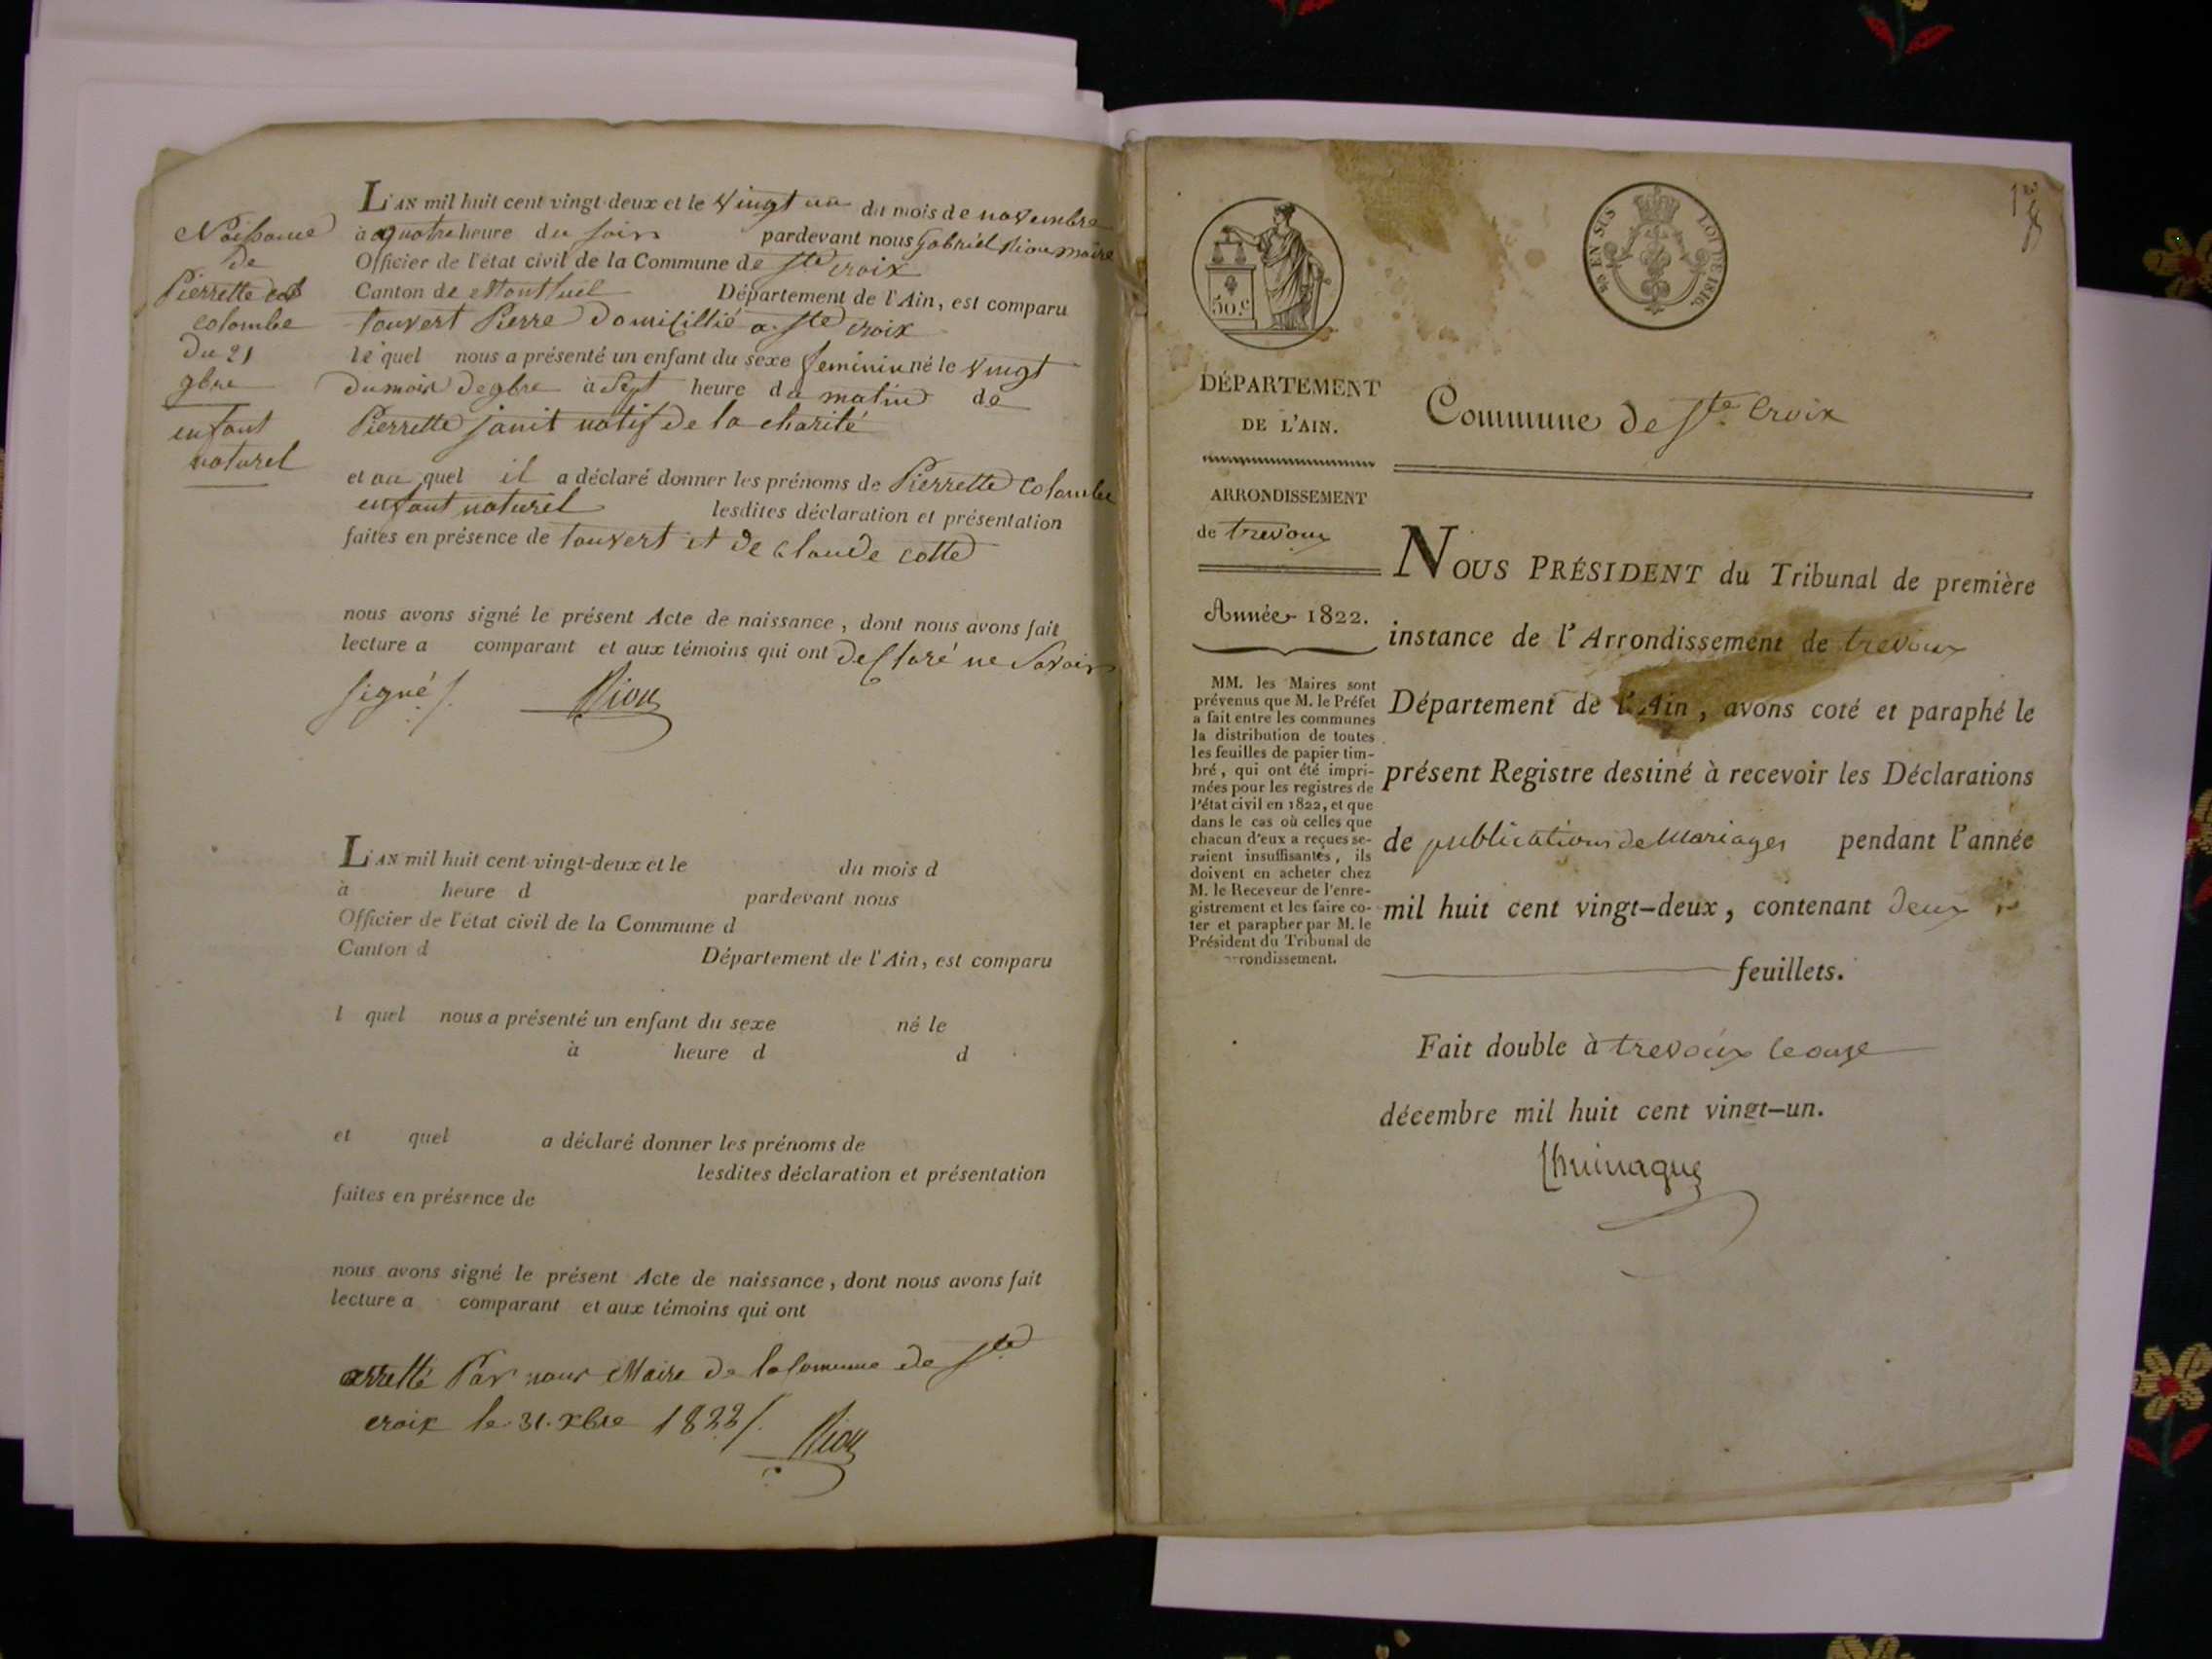 Naissance
de
Pierrette
colombe
du 21
9bre
enfant
naturel
L'AN mil huit cent vingt-deux et le vingt un du mois de novembre
à quatre heure du soir pardevant nous Gabriel Riou maire
Officier de l'état civil de la Commune de Ste croix
Canton de Montluel Département de l'Ain, est comparu
Pierre domicillié a Ste croix
le quel nous a présenté un enfant du sexe feminin né le vingt
du mois de 9bre à sept heure du matin de
Pierrette janit natif de la charité
et au quel il a déclaré donner les prénoms de Pierrette colombe
enfant naturel lesdites déclaration et présentation
faites en présence de touvert et de claude cotte
nous avons signé le présent Acte de naissance, dont nous avons fait
lecture a comparant et aux témoins qui ont declaré ne savoir
signé /. Riou
L'AN mil huit cent vingt-deux et le du mois d
à heure d pardevant nous
Officier de l'état civil de la Commune d
Canton d Département de l'Ain, est comparu
l quel nous a présenté un enfant du sexe né le
à heure d d
et quel a déclaré donner les prénoms de
lesdites déclaration et présentation
faites en présence de
nous avons signé le présent Acte de naissance, dont nous avons fait
lecture a comparant et aux témoins qui ont
arretté Par nous Maire de la Commune de Ste
croix le 31. Xbre 1822/. Riou
50.c
EN SUS
LOI DE 1816.
DÉPARTEMENT
DE L'AIN.
ARRONDISSEMENT
de trevoux
Année 1822.
MM. les Maires sont
prévenus que M. le Préfet
a fait entre les communes
la distribution de toutes
les feuilles de papier tim-
bré, qui ont été impri-
mées pour les registres de
l'état civil en 1822, et que
dans le cas où celles que
chacun d'eux a reçues se-
raient insuffisantes, ils
doivent en acheter chez
M. le Receveur de l'enre-
gistrement et les faire co-
ter et parapher par M. le
Président du Tribunal de
rrondissement.
Commune de Ste Croix
NOUS PRÉSIDENT du Tribunal de première
instance de l'Arrondissement de trevoux
Département de l'Ain, avons coté et paraphé le
présent Registre destiné à recevoir les Déclarations
de publications de Mariages pendant l'année
mil huit cent vingt-deux, contenant deux
feuillets.
Fait double à trevoux le onze
décembre mil huit cent vingt-un.